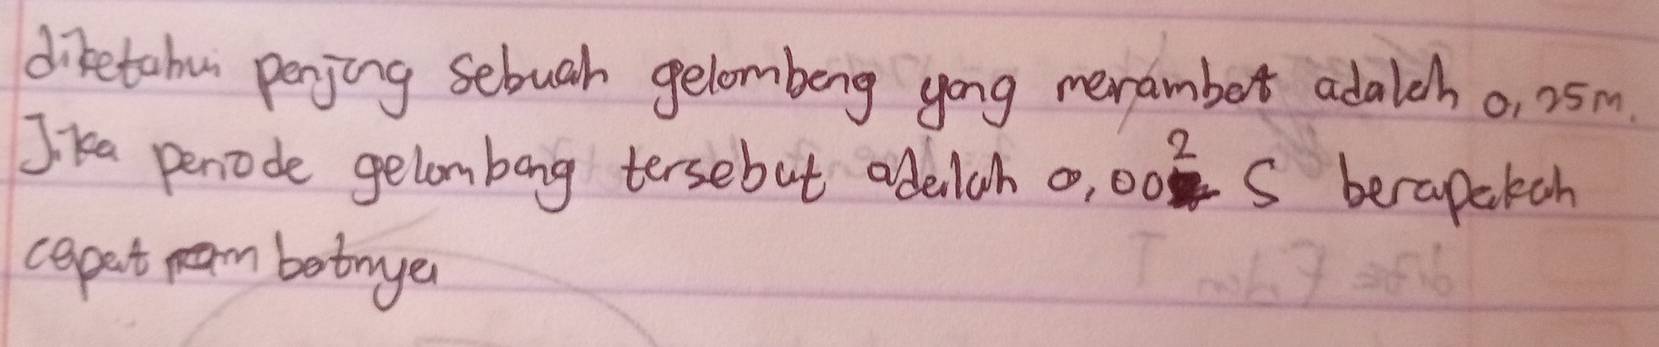 diketahui panjang sebuah gelombang yang merambat adalah 0,25m.
Jika periode gelombang tersebut adalah 0,002 S berapakah
cepat rambatnya